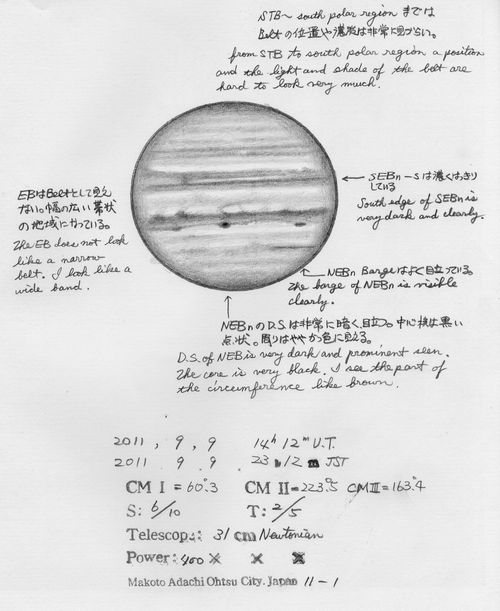 STB~ south polar region までは
Beltの位置や濃淡は非常に見づらい。
from STB to south polar region a position
and the light and shade of the belt are
hard to look very much.
SEBn-Sは濃くはっきり
している
South edge of SEBn is
very dark and clearly.
EBはBeltとして見え
ない。幅の広い帯状
の地域になっている。
The EB does not look
like a narrow
belt. I look like a
wide band.
NEBn Bargeはよく目立っている。
The barge of NEBn is visible
clearly.
NEBnのD.S.は非常に暗く、目立つ。中心核は黒い
点状。周りはややかっ色に見える。
D.S. of NEB is very dark and prominent seen.
The core is very black. I see the part of
the circumference like brown.
2011, 9, 9 14h 12m U.T.
2011 9 9 23 12 JST
CM I = 60°.3 CM II=223°.5 CM III=163°.4
S: 6/10 T: 2/5
Telescope: 31 cm Newtonian
Power: 400×  ×  ×
Makoto Adachi Ohtsu City. Japan 11-1